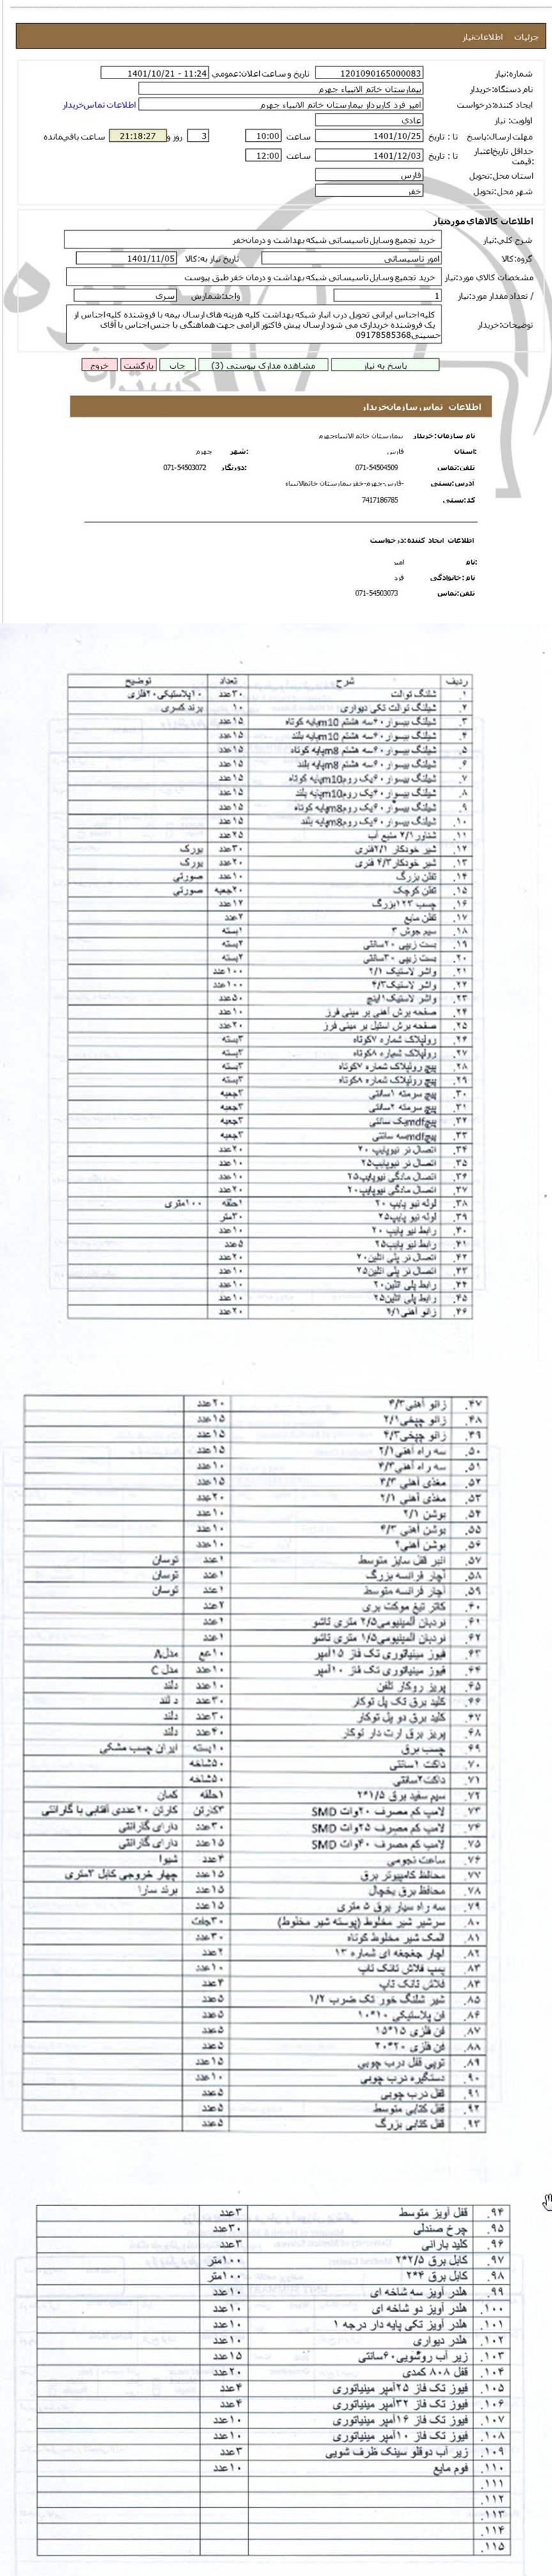 جزئیات اطلاعات نیاز
شماره نیاز: 1201090165000083 تاریخ و ساعت اعلان عمومی: 1401/10/21 - 11:24
نام دستگاه خریدار: بیمارستان خاتم الانبیاء جهرم
ایجاد کننده درخواست: امیر فرد کارپرداز بیمارستان خاتم الانبیاء جهرم اطلاعات تماس خریدار
اولویت نیاز: عادی
مهلت ارسال پاسخ: تا تاریخ: 1401/10/25 ساعت 10:00 3 روز و 21:18:27 ساعت باقی مانده
حداقل تاریخ اعتبار قیمت: تا تاریخ: 1401/12/03 ساعت 12:00
استان محل تحویل: فارس
شهر محل تحویل: خفر
اطلاعات کالاهای مورد نیاز
شرح کلی نیاز: خرید تجمیع وسایل تاسیساتی شبکه بهداشت و درمان خفر
گروه کالا: امور تاسیساتی تاریخ نیاز به کالا: 1401/11/05
مشخصات کالای مورد نیاز: خرید تجمیع وسایل تاسیساتی شبکه بهداشت و درمان خفر طبق پیوست
/ تعداد مقدار مورد نیاز: 1 واحد شمارش: سری
توضیحات خریدار: کلیه اجناس ایرانی تحویل درب انبار شبکه بهداشت کلیه هزینه های ارسال بیمه با فروشنده کلیه اجناس از
یک فروشنده خریداری می شود ارسال پیش فاکتور الزامی جهت هماهنگی با جنس اجناس با آقای
حسینی 09178585368
پاسخ به نیاز مشاهده مدارک پیوستی (3) چاپ بازگشت خروج
اطلاعات تماس سازمان خریدار
نام سازمان خریدار: بیمارستان خاتم الانبیاء جهرم
استان: فارس شهر: جهرم
تلفن تماس: 071-54504509 دورنگار: 071-54503072
آدرس پستی: فارس-جهرم-خفر بیمارستان خاتم الانبیاء
کد پستی: 7417186785
اطلاعات ایجاد کننده درخواست:
نام: امیر
نام خانوادگی: فرد
تلفن تماس: 071-54503073
ردیف شرح تعداد توضیح
۱. شلنگ توالت ۳۰عدد ۱۰پلاستیکی۲۰فلزی
۲. شیلنگ توالت تکی دیواری ۱۰ برند کسری
۳. شیلنگ پیسوار۴۰سه هشتم m10پایه کوتاه ۱۵عدد
۴. شیلنگ پیسوار۴۰سه هشتم m10پایه بلند ۱۵عدد
۵. شیلنگ پیسوار۴۰سه هشتم m8پایه کوتاه ۱۵عدد
۶. شیلنگ پیسوار۴۰سه هشتم m8پایه بلند ۱۵عدد
۷. شیلنگ پیسوار۶۰یک دوم m10پایه کوتاه ۱۵عدد
۸. شیلنگ پیسوار۶۰یک دوم m10پایه بلند ۱۵عدد
۹. شیلنگ پیسوار۶۰یک دوم m8پایه کوتاه ۱۵عدد
۱۰. شیلنگ پیسوار۶۰یک دوم m8پایه بلند ۱۵عدد
۱۱. شناور ۲/۱ منبع آب ۲۵عدد
۱۲. شیر خودکار ۲/۱فنری ۳۰عدد یورک
۱۳. شیر خودکار ۴/۳ فنری ۲۰عدد یورک
۱۴. تفلن بزرگ ۱۰عدد صورتی
۱۵. تفلن کوچک ۲۰جعبه صورتی
۱۶. چسب ۱۲۳بزرگ ۱۲عدد
۱۷. تفلن مایع ۲عدد
۱۸. سیم جوش ۳ ۱بسته
۱۹. بست زیپی ۲۰سانتی ۲بسته
۲۰. بست زیپی ۳۰سانتی ۲بسته
۲۱. واشر لاستیک ۲/۱ ۱۰۰عدد
۲۲. واشر لاستیک۴/۳ ۱۰۰عدد
۲۳. واشر لاستیک۱اینچ ۵۰عدد
۲۴. صفحه برش آهنی بر مینی فرز ۱۰عدد
۲۵. صفحه برش استیل بر مینی فرز ۲۰عدد
۲۶. رولپلاک شماره ۷کوتاه ۳بسته
۲۷. رولپلاک شماره ۸کوتاه ۳بسته
۲۸. پیچ رولپلاک شماره ۷کوتاه ۳بسته
۲۹. پیچ رولپلاک شماره ۸کوتاه ۳بسته
۳۰. پیچ سرمته ۱سانتی ۳جعبه
۳۱. پیچ سرمته ۲سانتی ۳جعبه
۳۲. پیچmdfیک سانتی ۳جعبه
۳۳. پیچmdfسه سانتی ۳جعبه
۳۴. اتصال نر نیوپایپ ۲۰ ۲۰عدد
۳۵. اتصال نر نیوپایپ۲۵ ۱۰عدد
۳۶. اتصال مادگی نیوپایپ۲۵ ۱۰عدد
۳۷. اتصال مادگی نیوپایپ۲۰ ۲۰عدد
۳۸. لوله نیو پایپ ۲۰ ۱حلقه ۱۰۰متری
۳۹. لوله نیو پایپ۲۵ ۳۰متر
۴۰. رابط نیو پایپ ۲۰ ۱۰عدد
۴۱. رابط نیو پایپ۲۵ ۵عدد
۴۲. اتصال نر پلی اتلین۲۰ ۲۰عدد
۴۳. اتصال نر پلی اتلین۲۵ ۱۰عدد
۴۴. رابط پلی اتلین۲۰ ۱۰عدد
۴۵. رابط پلی اتلین۲۵ ۱۰عدد
۴۶. زانو آهنی۲/۱ ۲۰عدد
۴۷. زانو آهنی۴/۳ ۲۰عدد
۴۸. زانو چپقی۲/۱ ۱۵عدد
۴۹. زانو چپقی۴/۳ ۱۵عدد
۵۰. سه راه آهنی۲/۱ ۱۵عدد
۵۱. سه راه آهنی۴/۳ ۱۰عدد
۵۲. مغذی آهنی ۴/۳ ۱۵عدد
۵۳. مغذی آهنی ۲/۱ ۲۰عدد
۵۴. بوشن ۲/۱ ۱۰عدد
۵۵. بوشن آهنی ۴/۳ ۱۰عدد
۵۶. بوشن آهنی۱ ۱۰عدد
۵۷. انبر قفل سایز متوسط ۱عدد توسان
۵۸. آچار فرانسه بزرگ ۱عدد توسان
۵۹. آچار فرانسه متوسط ۱عدد توسان
۶۰. کاتر تیغ موکت بری ۲عدد
۶۱. نردبان آلمینیومی۲/۵ متری تاشو ۱عدد
۶۲. نردبان آلمینیومی۱/۵ متری تاشو ۱عدد
۶۳. فیوز مینیاتوری تک فاز ۱۵آمپر ۱۰ع مدلA
۶۴. فیوز مینیاتوری تک فاز ۱۰آمپر ۱۰عدد مدل C
۶۵. پریز روکار تلفن ۱۰عدد دلند
۶۶. کلید برق تک پل توکار ۳۰عدد د لند
۶۷. کلید برق دو پل توکار ۳۰عدد دلند
۶۸. پریز برق ارت دار توکار ۴۰عدد دلند
۶۹. چسب برق ۱۰بسته ایران چسب مشکی
۷۰. داکت ۱سانتی ۵۰شاخه
۷۱. داکت۲سانتی ۵۰شاخه
۷۲. سیم سفید برق ۱/۵*۲ ۱حلقه کمان
۷۳. لامپ کم مصرف ۲۰وات SMD ۳کارتن کارتن ۲۰عددی آفتابی با گارانتی
۷۴. لامپ کم مصرف ۲۵وات SMD ۳۰عدد دارای گارانتی
۷۵. لامپ کم مصرف ۴۰وات SMD ۱۵عدد دارای گارانتی
۷۶. ساعت نجومی ۴عدد شیوا
۷۷. محافظ کامپیوتر برق ۱۵عدد چهار خروجی کابل ۳متری
۷۸. محافظ برق یخچال ۱۵عدد برند سارا
۷۹. سه راه سیار برق ۵ متری ۱۵عدد
۸۰. سرشیر شیر مخلوط (پوسته شیر مخلوط) ۳۰جفت
۸۱. المک شیر مخلوط کوتاه ۳۰عدد
۸۲. آچار جغجغه ای شماره ۱۳ ۲عدد
۸۳. پمپ فلاش تانک تاپ ۱۰عدد
۸۴. فلاش تانک تاپ ۴عدد
۸۵. شیر شلنگ خور تک ضرب ۱/۲ ۵عدد
۸۶. فن پلاستیکی ۱۰*۱۰ ۵عدد
۸۷. فن فلزی ۱۵*۱۵ ۵عدد
۸۸. فن فلزی ۲۰*۲۰ ۵عدد
۸۹. توپی قفل درب چوبی ۱۵عدد
۹۰. دستگیره درب چوبی ۱۰عدد
۹۱. قفل درب چوبی ۵عدد
۹۲. قفل کتابی متوسط ۵عدد
۹۳. قفل کتابی بزرگ ۵عدد
۹۴. قفل آویز متوسط ۳عدد
۹۵. چرخ صندلی ۳۰عدد
۹۶. کلید بارانی ۳عدد
۹۷. کابل برق ۲/۵*۲ ۱۰۰متر
۹۸. کابل برق ۴*۲ ۱۰۰متر
۹۹. هلدر آویز سه شاخه ای ۱۰عدد
۱۰۰. هلدر آویز دو شاخه ای ۱۰عدد
۱۰۱. هلدر آویز تکی پایه دار درجه ۱ ۱۰عدد
۱۰۲. هلدر دیواری ۱۰عدد
۱۰۳. زیر آب روشویی۶۰سانتی ۱۵عدد
۱۰۴. قفل ۸۰۸ کمدی ۲۰عدد
۱۰۵. فیوز تک فاز ۲۵آمپر مینیاتوری ۴عدد
۱۰۶. فیوز تک فاز ۳۲آمپر مینیاتوری ۴عدد
۱۰۷. فیوز تک فاز ۱۶آمپر مینیاتوری ۱۰عدد
۱۰۸. فیوز تک فاز ۱۰آمپر مینیاتوری ۱۰عدد
۱۰۹. زیر آب دوقلو سینک ظرف شویی ۳عدد
۱۱۰. فوم مایع ۱۰عدد
۱۱۱.
۱۱۲.
۱۱۳.
۱۱۴.
۱۱۵.